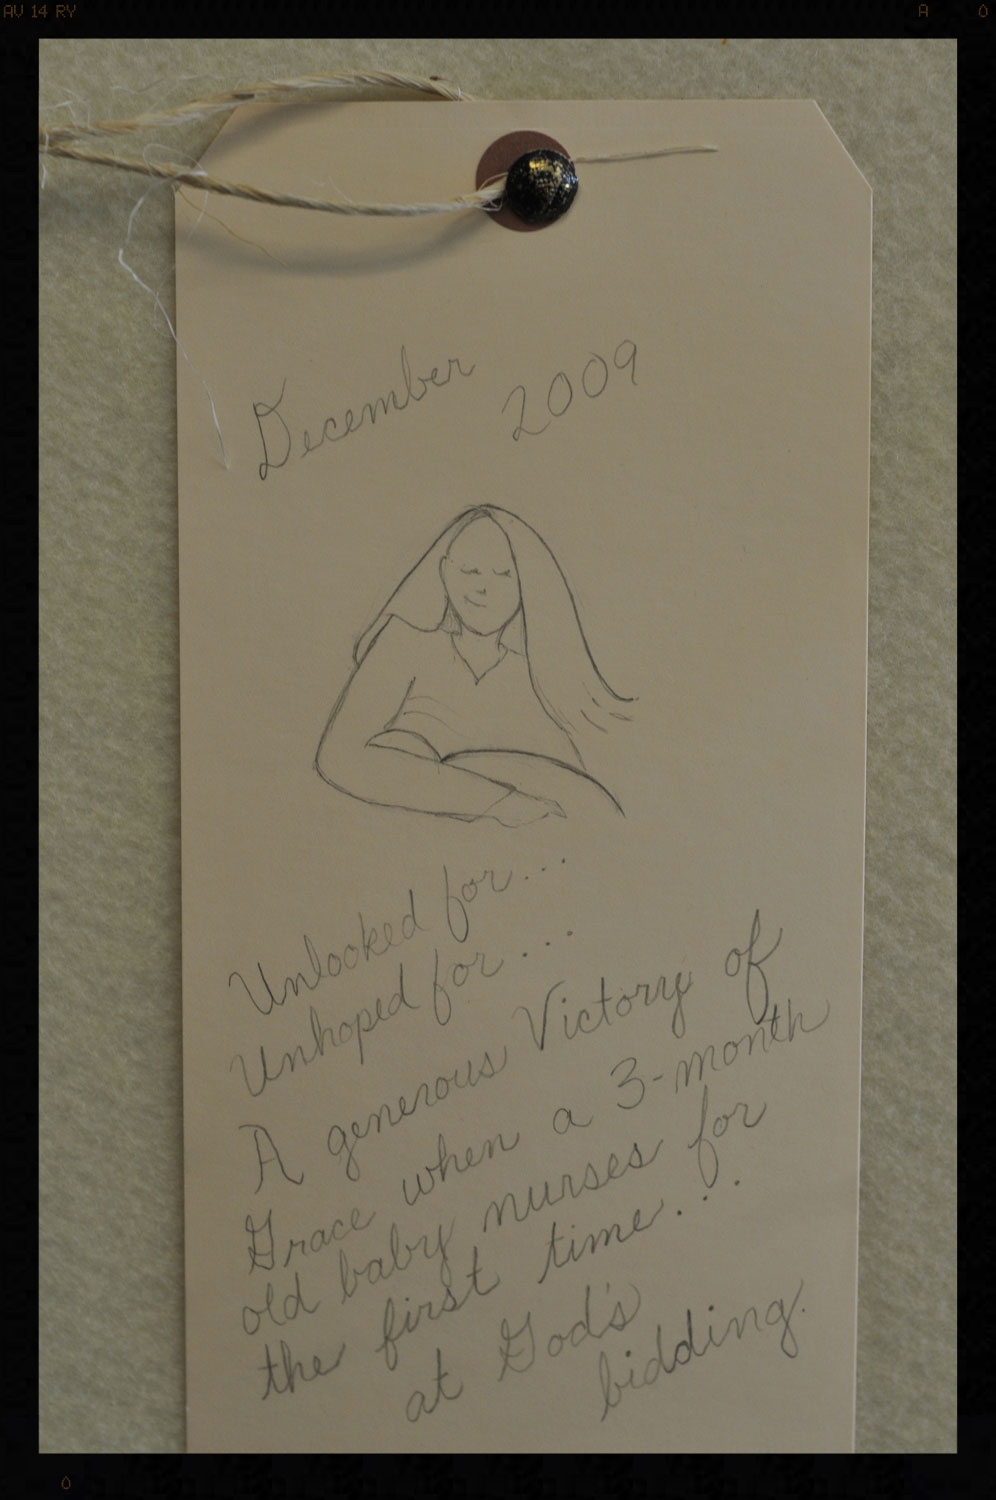 AV 14 RY
A 0
December
2009
Unlooked for...
Unhoped for....
A generous Victory of
Grace when a 3-month
old baby nurses for
the first time...
at God's
bidding.
0